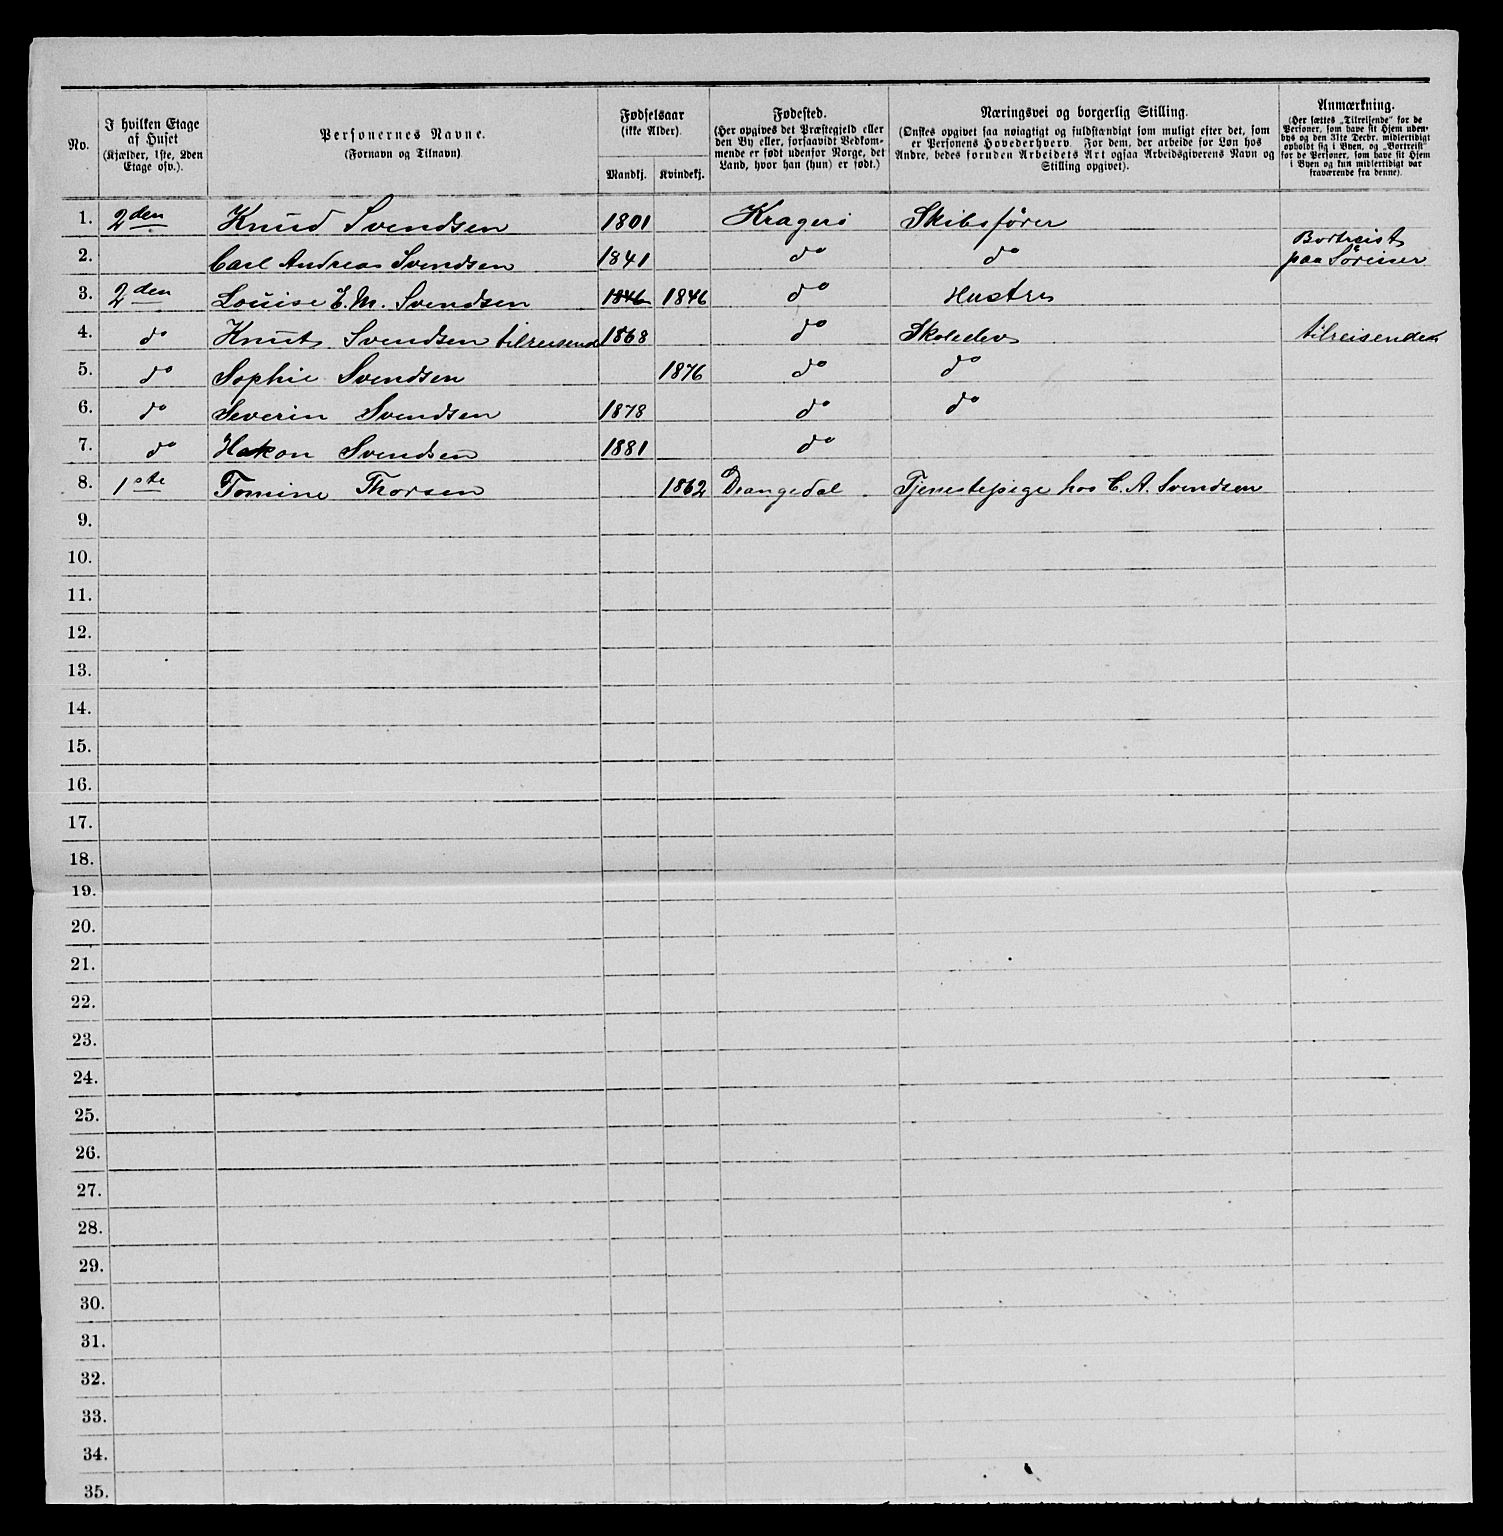 No.
I hvilken Etage af Huset
(Kjælder, 1ste, 2den Etage osv.).
Personernes Navne.
(Fornavn og Tilnavn)
Fødselsaar
(ikke Alder).
Mandkj. Kvindekj.
Fødested.
(Her opgives det Præstegjeld eller
den By eller, forsaavidt Vedkom-
mende er født udenfor Norge, det
Land, hvor han (hun) er født.)
Næringsvei og borgerlig Stilling.
(Ønskes opgivet saa nøiagtigt og fuldstændigt som muligt efter det, som
er Personens Hovederhverv. For dem, der arbeide for Løn hos
Andre, bedes foruden Arbeidets Art ogsaa Arbeidsgiverens Navn og
Stilling opgivet).
Anmærkning.
(Her sættes „Tilreisende" for de
Personer, som have sit Hjem uden-
bys og den 31te Decbr. midlertidigt
opholdt sig i Byen, og „Bortreist"
for de Personer, som have sit Hjem
i Byen og kun midlertidigt var
fraværende fra denne).
1. 2den Knud Svendsen 1801 Kragerö Skibsfører
2. Carl Andreas Svendsen 1841 do do Bortreist
paa Söreiser
3. 2den Louise E. M. Svendsen 1846 1846 do Hustru
4. do Knut Svendsen tilreisende 1868 do Skoleelev tilreisende
5. do Sophie Svendsen 1876 do do
6. do Severin Svendsen 1878 do do
7. do Hakon Svendsen 1881 do
8. 1ste Tomine Thorsen 1862 Drangedal Tjenestepige hos C. A. Svendsen
9.
10.
11.
12.
13.
14.
15.
16.
17.
18.
19.
20.
21.
22.
23.
24.
25.
26.
27.
28.
29.
30.
31.
32.
33.
34.
35.